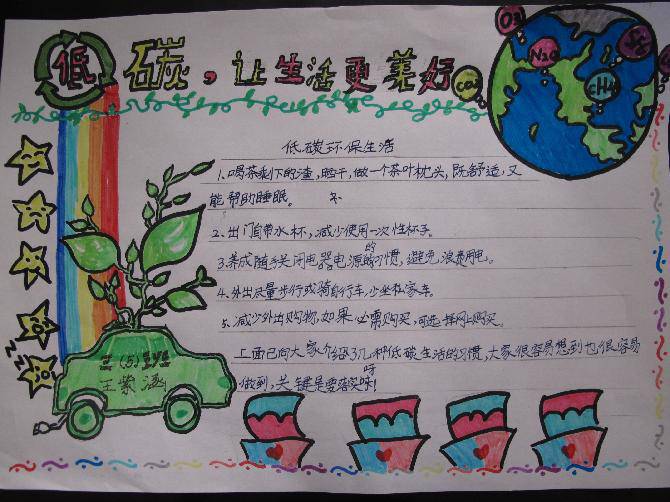 低碳，让生活更美好
O3
N2O
CO2
CH4
低碳环保生活
1.喝茶剩下的渣，晒干，做一个茶叶枕头，既舒适，又
能帮助睡眠。
2.出门自带水杯，减少使用一次性杯子。
3.养成随手关闭电器电源的习惯，避免浪费用电。
4.外出尽量步行或骑自行车，少坐私家车。
5.减少外出购物，如果必需购买，可选择网上购买。
上面已向大家介绍了几种低碳生活的习惯，大家很容易想到也很容易
做到，关键是要落实呀！
(5)
王紫涵